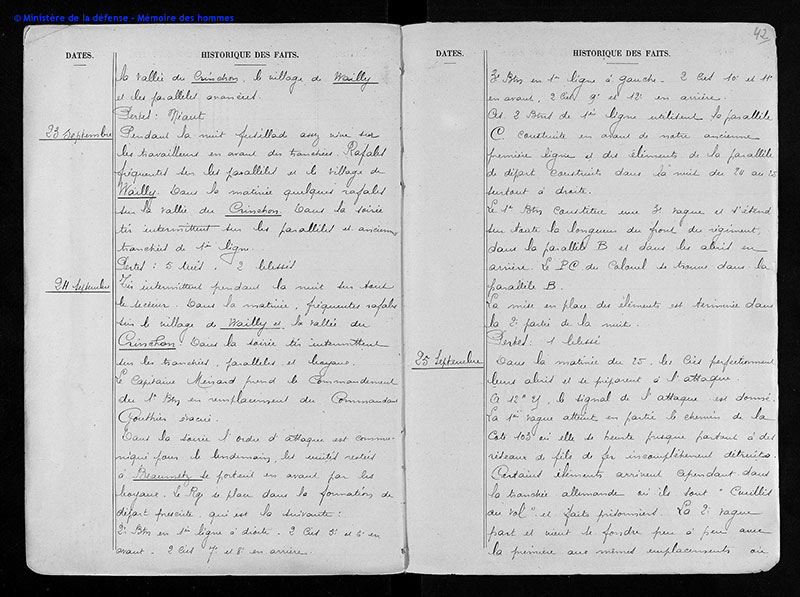 © Ministère de la défense - Mémoire des hommes
DATES.
HISTORIQUE DES FAITS.
la vallée du Crinchon, le village de Wailly
et les parallèles avancées.
Pertes : Néant
23 Septembre
Pendant la nuit fusillade assez vive sur
les travailleurs en avant des tranchées. Rafales
fréquentes sur les parallèles et le village de
Wailly. Dans la matinée quelques rafales
sur la vallée du Crinchon. Dans la soirée
tir intermittent sur les parallèles et anciennes
tranchées de 1re ligne.
Pertes : 5 tués, 2 blessés
24 Septembre
Tir intermittent pendant la nuit sur tout
le secteur. Dans la matinée, fréquentes rafales
sur le village de Wailly et la vallée du
Crinchon. Dans la soirée tir intermittent
sur les tranchées, parallèles et boyaux.
Le Capitaine Menard prend le Commandement
du 1er Btn en remplacement du Commandant
Gouthier évacué.
Dans la soirée l'ordre d'attaque est commu-
niqué pour le lendemain, les unités restées
à Beaumetz se portent en avant par les
boyaux. Le Rgt se place dans la formation de
départ prescrite qui est la suivante :
2e Btn en 1re ligne à droite. 2 Cies 5e et 6e en
avant. 2 Cies 7e et 8e en arrière.
42
DATES.
HISTORIQUE DES FAITS.
3e Btn en 1re ligne à gauche. 2 Cies 10e et 11e
en avant, 2 Cies 9e et 12e en arrière.
Ces 2 Btns de 1re ligne utilisent la parallèle
C construite en avant de notre ancienne
première ligne et des éléments de la parallèle
de départ construits dans la nuit du 24 au 25
surtout à droite.
Le 1er Btn constitue une 3e vague et s'étend
sur toute la longueur du front du régiment,
dans la parallèle B et dans les abris en
arrière. Le PC du Colonel se trouve dans la
parallèle B.
La mise en place des éléments est terminée dans
la 2e partie de la nuit.
Pertes : 1 blessé
25 Septembre
Dans la matinée du 25, les Cies perfectionnent
leurs abris et se préparent à l'attaque.
A 12h 25, le signal de l'attaque est donné.
La 1re vague atteint en partie le chemin de la
Cote 103 où elle se heurte presque partout à des
réseaux de fils de fer incomplètement détruits.
Certains éléments arrivent cependant dans
la tranchée allemande où ils sont "Cueillis
au vol" et faits prisonniers. La 2e vague
part et vient se fondre peu à peu avec
la première aux mêmes emplacements où